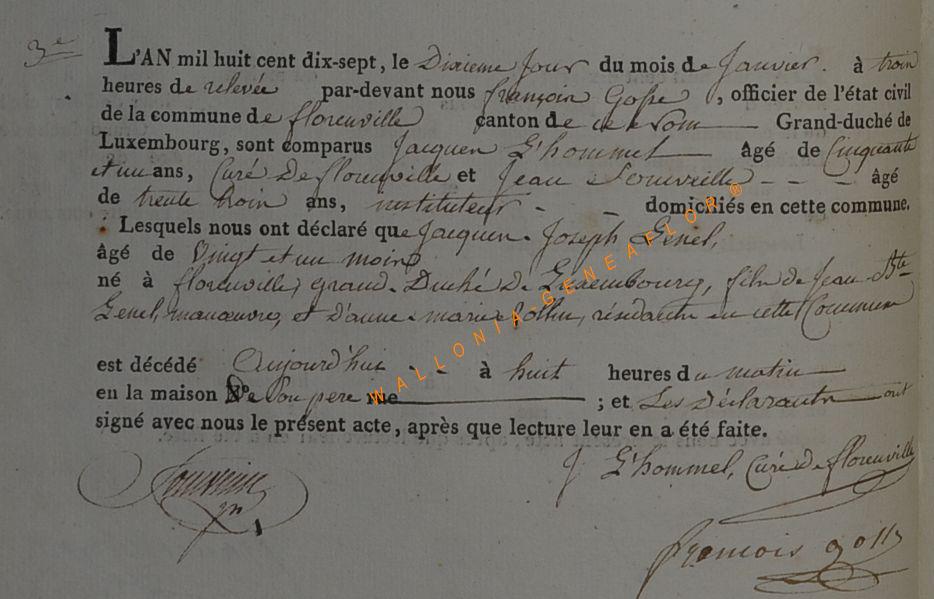 3e L'AN mil huit cent dix-sept, le Dixieme Jour du mois de Janvier. à trois
heures de relevée par-devant nous françois Gosse, officier de l'état civil
de la commune de florenville canton de ce nom Grand-duché de
Luxembourg, sont comparus Jacques L'hommel âgé de Cinquante
et un ans, Curé De florenville et Jean - - - âgé
de trente trois ans, instituteur - - domiciliés en cette commune.
Lesquels nous ont déclaré que Jacques Joseph Genel,
âgé de Vingt et un mois
né à florenville, grand Duché De Luxembourg, fils de Jean Bte
Genel, manœuvre, et D'anne marie résidants en cette Commune
est décédé Aujourd'hui - - à huit heures du matin
en la maison De Son pere rue ; et Les Déclarants ont
signé avec nous le présent acte, après que lecture leur en a été faite.
J L'hommel, Curé De florenville
françois goss
WALLONIA-GENEAFLOR®